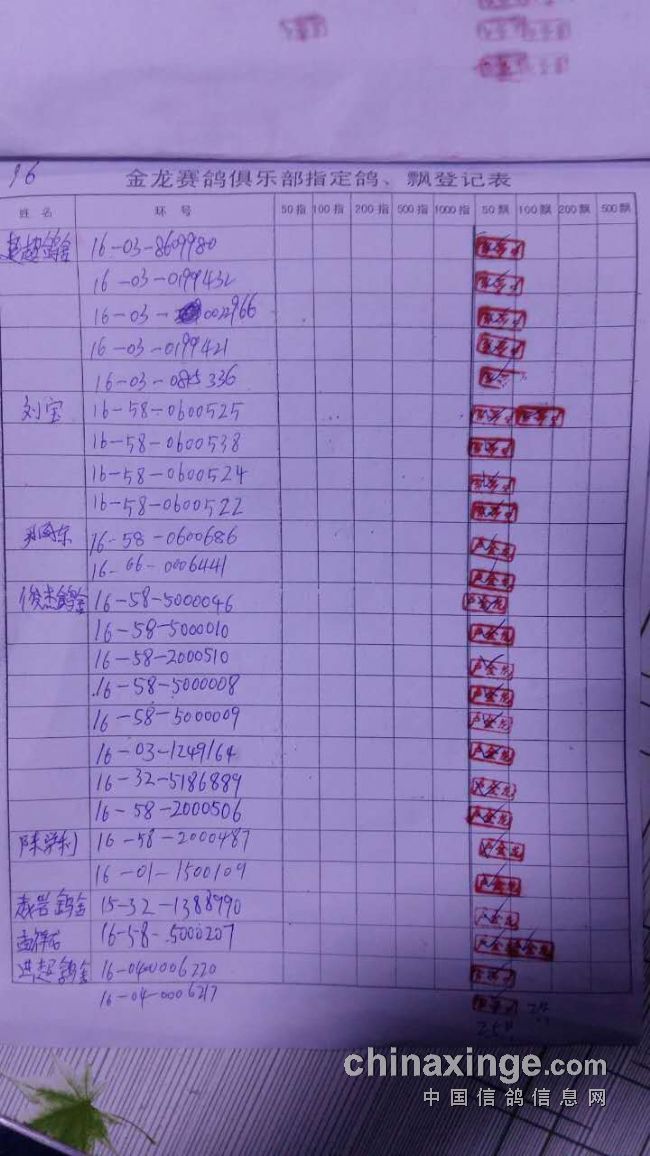 16
金龙赛鸽俱乐部指定鸽、飘登记表
姓名 环号 50指 100指 200指 500指 1000指 50飘 100飘 200飘 500飘
16-03-8609980
16-03-0199432
16-03-0022966
16-03-0199421
16-03-085336
刘宝 16-58-0600525
16-58-0600538
16-58-0600524
16-58-0600522
16-58-0600686
16-66-0006441
俊杰鸽舍 16-58-5000046 卢金龙
16-58-5000010 卢金龙
16-58-2000510 卢金龙
16-58-5000008 卢金龙
16-58-5000009 卢金龙
16-03-1249164 卢金龙
16-32-5186889 卢金龙
16-58-2000506 卢金龙
陈学利 16-58-2000487 卢金龙
16-01-1500109 卢金龙
15-32-1388990 卢金龙
16-58-5000207 卢金龙 卢金龙
进超鸽舍 16-04-0006220
16-04-0006217
chinaxinge.com
中国信鸽信息网